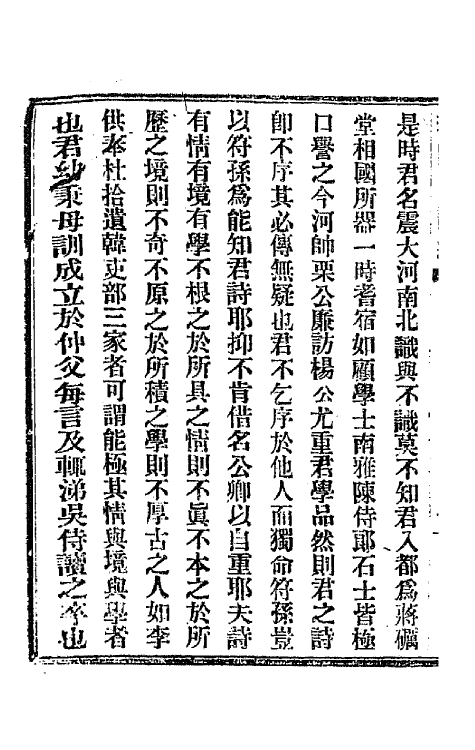 是時君名震大河南北識與不識莫不知君入都為蔣礪
堂相國所器一時耆宿如顧學士南雅陳侍郎石士皆極
口譽之今河帥栗公廉訪楊公尤重君學品然則君之詩
卽不序其必傳無疑也君不乞序於他人而獨命符孫豈
以符孫為能知君詩耶抑不肯借名公卿以自重耶夫詩
有情有境有學不根之於所具之情則不眞不本之於所
歷之境則不奇不原之於所積之學則不厚古之人如李
供奉杜拾遺韓吏部三家者可謂能極其情與境與學者
也君幼秉母訓成立於仲父每言及輒涕吳侍讀之卒也